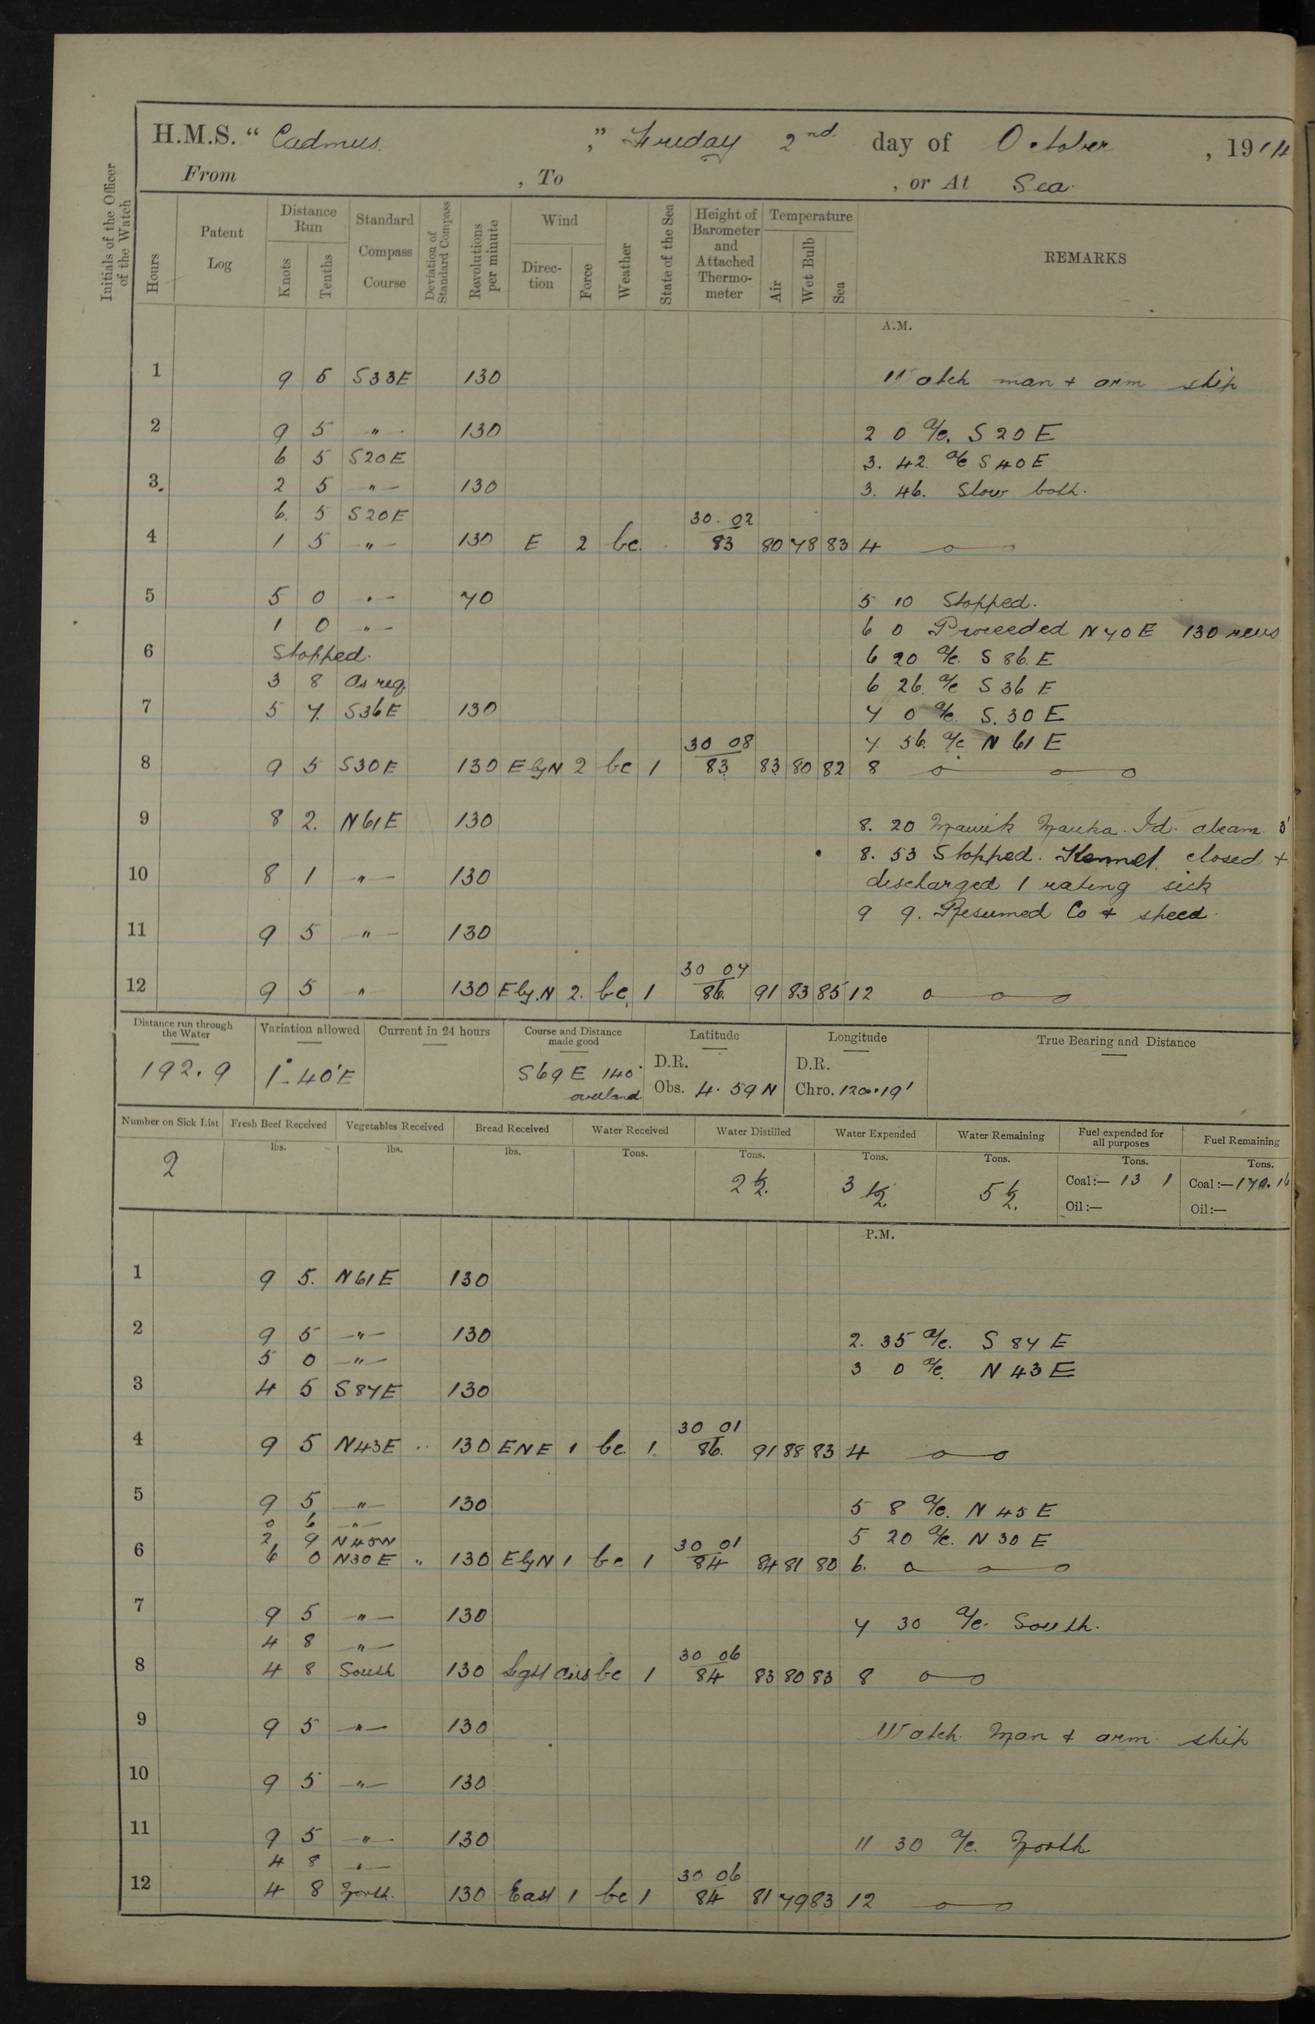 H.M.S. “ Cadmus ,” Friday 2nd day of October , 1914
From , To , or At Sea.
Initials of the Officer of the Watch
Hours
Patent Log
Distance Run
Knots
Tenths
Standard Compass Course
Deviation of Standard Compass
Revolutions per minute
Wind
Direction
Force
Weather
State of the Sea
Height of Barometer and Attached Thermometer
Temperature
Air
Wet Bulb
Sea
REMARKS
A.M.
1 9 5 S33E 130 Watch man + arm ship
2 9 5 -"- 130 2 0 a/c. S 20 E
6 5 S20E 3. 42. a/c S 40 E
3 2 5 -"- 130 3. 46. Slow both.
6. 5 S20E 30. 02
4 1 5 -"- 130 E 2 bc. 83 80 78 83 4
5 5 0 -"- 70 5 10 Stopped.
1 0 -"- 6 0 Proceeded N 70 E 130 revs
6 Stopped. 6 20 a/c. S 86 E
3 8 As req. 6 26. a/c S 36 E
7 5 7. S36E 130 7 0 a/c. S. 30 E
30 08 7. 56. a/c N 61 E
8 9 5 S30E 130 EbyN 2 bc 1 83 83 80 82 8
9 8 2. N61E 130 8. 20 Id. abeam 3'
8. 53 Stopped. closed +
10 8 1 -"- 130 discharged 1 rating sick
9 9. Resumed Co + speed.
11 9 5 -"- 130
30 07
12 9 5 " 130 Eby.N 2. bc, 1 86. 91 83 85 12
Distance run through the Water
192.9
Variation allowed
1°-40'E
Current in 24 hours
Course and Distance made good
S69E 140'
overland
Latitude
D.R.
Obs. 4. 59 N
Longitude
D.R.
Chro. 120.19'
True Bearing and Distance
Number on Sick List
2
Fresh Beef Received
lbs.
Vegetables Received
lbs.
Bread Received
lbs.
Water Received
Tons.
Water Distilled
Tons.
2 1/2.
Water Expended
Tons.
3 1/2
Water Remaining
Tons.
5 1/2.
Fuel expended for all purposes
Tons.
Coal:— 13 1
Oil:—
Fuel Remaining
Tons.
Coal:— 170.16
Oil:—
P.M.
1 9 5. N61E 130
2 9 5 -"- 130 2. 35 a/c. S 87 E
5 0 -"- 3 0 a/c. N 43 E
3 4 5 S87E 130
30 01
4 9 5 N43E 130 ENE 1 bc. 1. 86. 91 88 83 4
5 9 5 -"- 130 5 8 a/c. N 45 E
0 6 -"-
2 9 N45N 30 01 5 20 a/c. N 30 E
6 6 0 N30E " 130 EbyN 1 bc 1 84 84 81 80 6.
7 9 5 -"- 130 7 30 a/c. South.
4 8 -"- 30 06
8 4 8 South 130 Light airs bc 1 84 83 80 83 8
9 9 5 -"- 130 Watch Man + arm ship
10 9 5 -"- 130
11 9 5 -"- 130 11 30 a/c. North
4 8 -"- 30 06
12 4 8 North. 130 East 1 bc 1 84 81 79 83 12